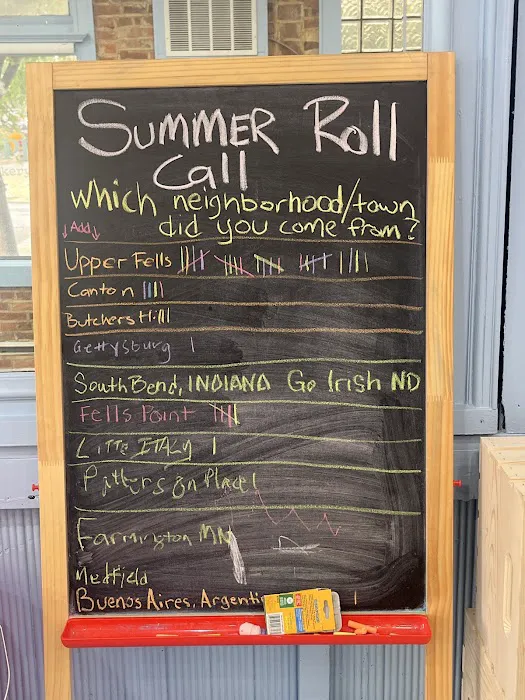 SUMMER Roll
Call
Which neighborhood/town
↓Add↓ did you come from?
Upper Fells
Canton
Butchers Hill
Gettysburg
South Bend, INDIANA Go Irish ND
Fells Point
Litte ITALY
Patterson Place
Farmington MN
Medfield
Buenos Aires, Argenti